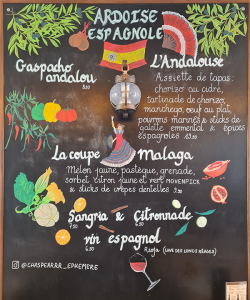 ARDOISE
ESPAGNOLE
Gaspacho
andalou
8.50
L'Andalouse
Assiette de tapas:
chorizo au cidre,
tartinade de chorizo,
manchego, oeuf au plat,
poivrons marinés & sticks de
galette emmental & épices
9.50
La coupe Malaga
Melon jaune, pastèque, grenade,
sorbet citron jaune et vert MOVENPICK
& sticks de crêpes dentelles
Sangria & Citronnade
vin espagnol
Rioja
@CHASPEARRR_EPHEMERE